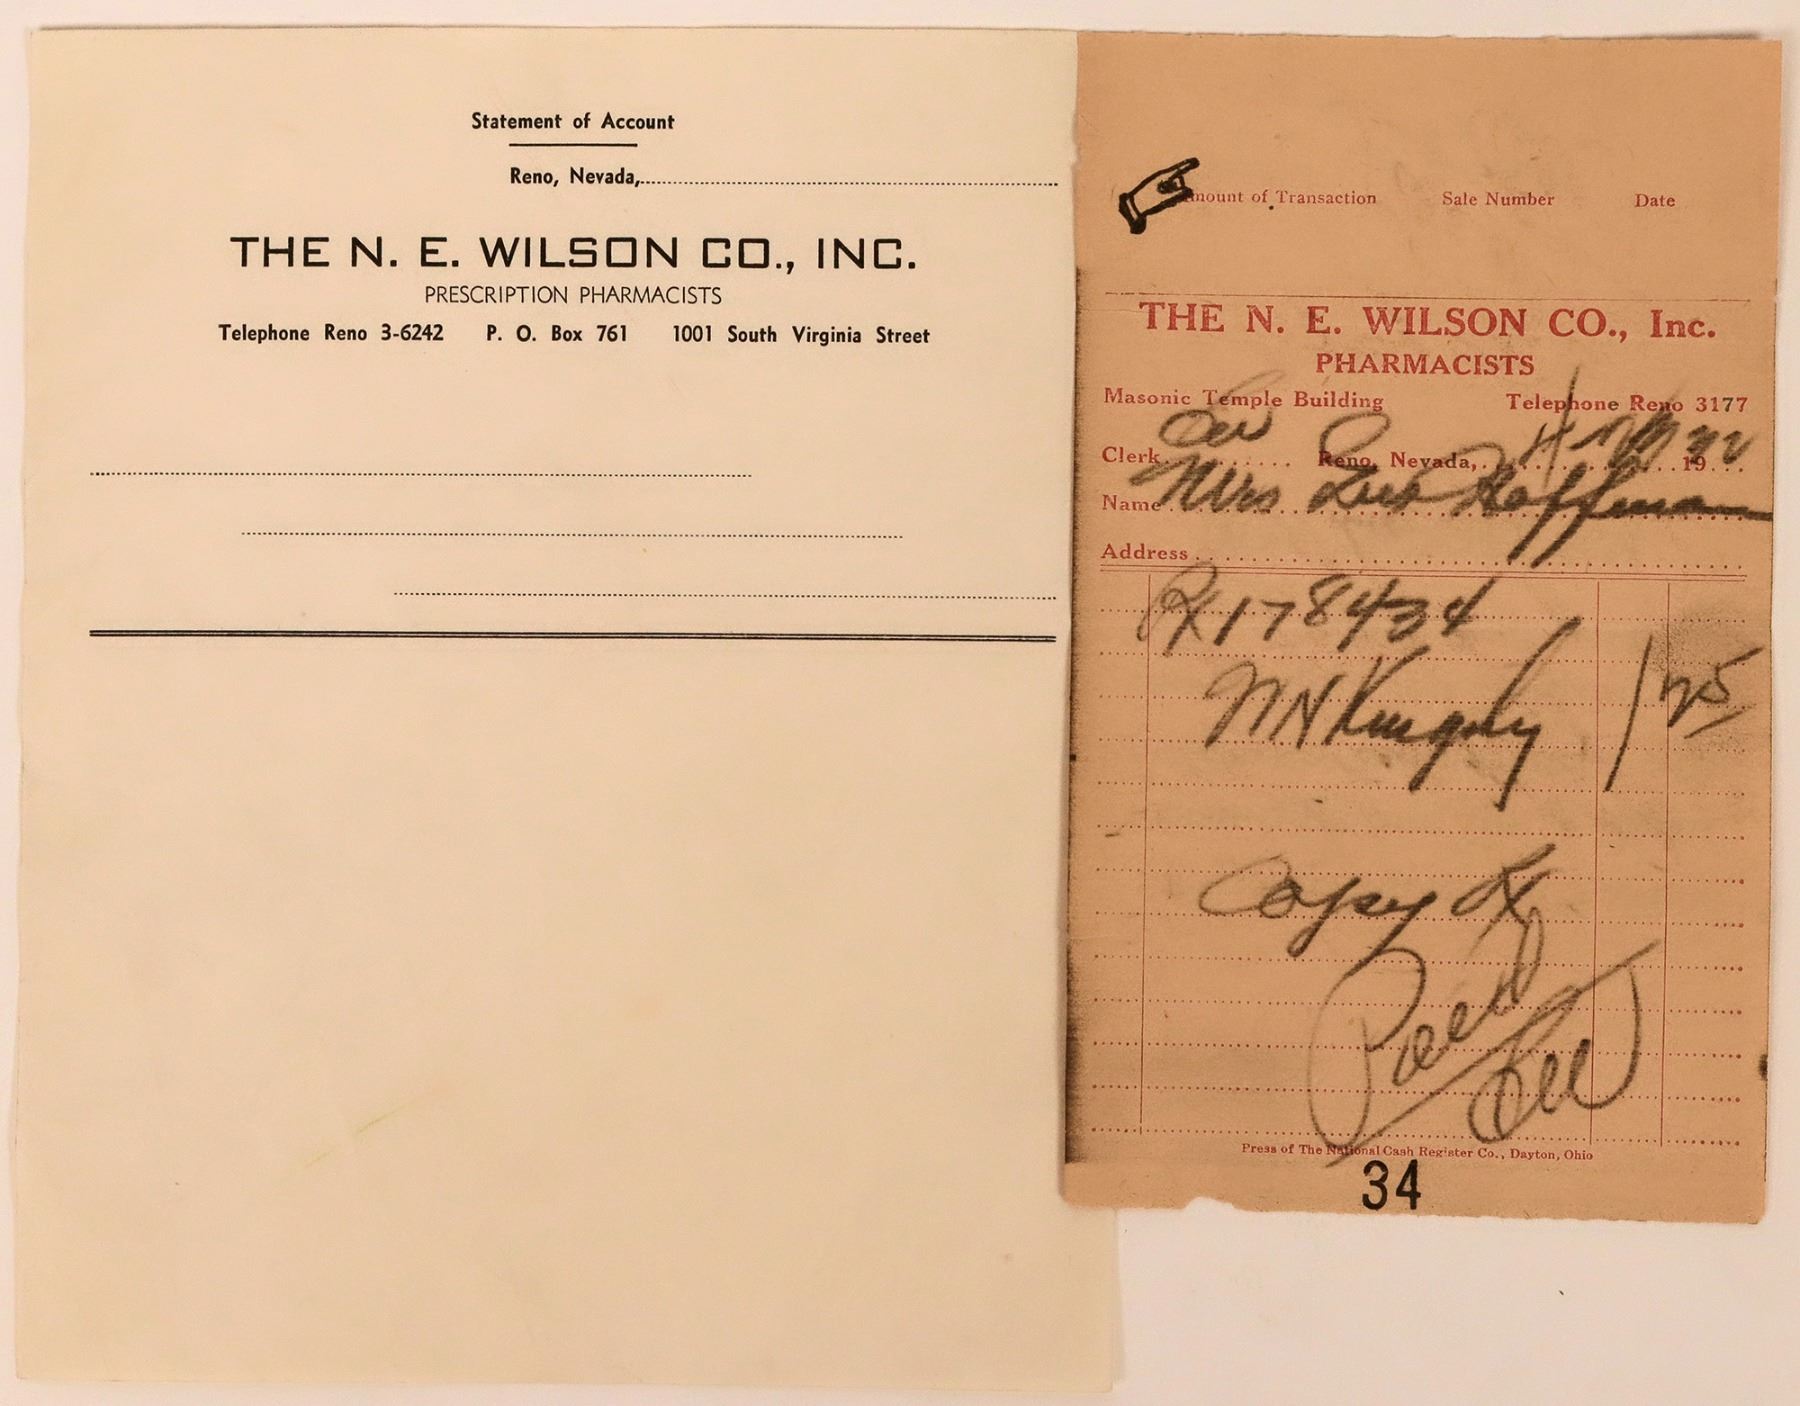 Statement of Account
Reno, Nevada,
THE N. E. WILSON CO., INC.
PRESCRIPTION PHARMACISTS
Telephone Reno 3-6242 P. O. Box 761 1001 South Virginia Street
mount of Transaction Sale Number Date
THE N. E. WILSON CO., Inc.
PHARMACISTS
Masonic Temple Building Telephone Reno 3177
Clerk Reno, Nevada, 19
Name Mrs Hoffman
Address
Rx 178434
1
Copy Rx
Press of The National Cash Register Co., Dayton, Ohio
34